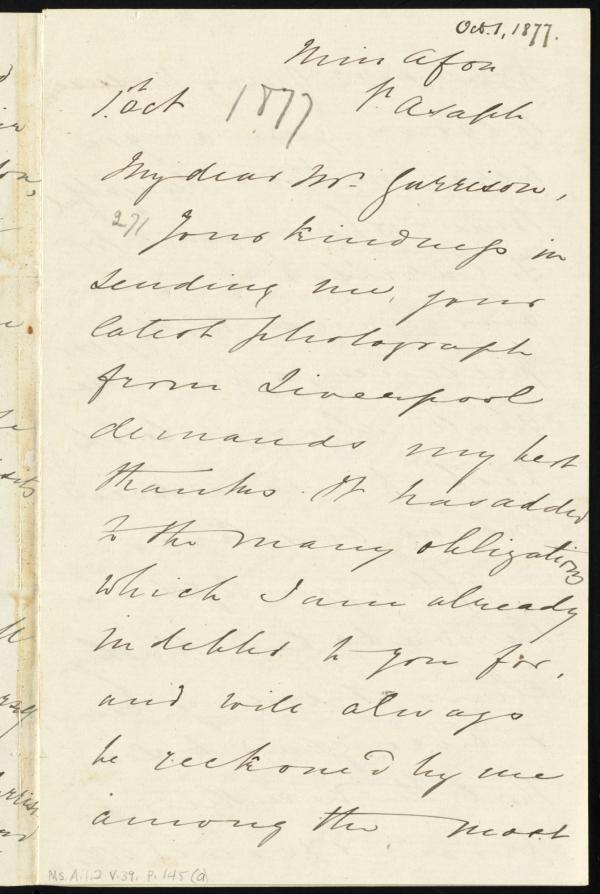 Oct. 1, 1877.
Min Afon
1st Oct 1877 St Asaph
My dear Mr. Garrison,
271
Your kindness in
sending me, your
latest photograph
from Liverpool
demands my best
thanks. It has added
to the many obligations
which I am already
indebted to you for,
and will always
be reckoned by me
among the most
Ms. A.1.2 V.39, P.145(a)